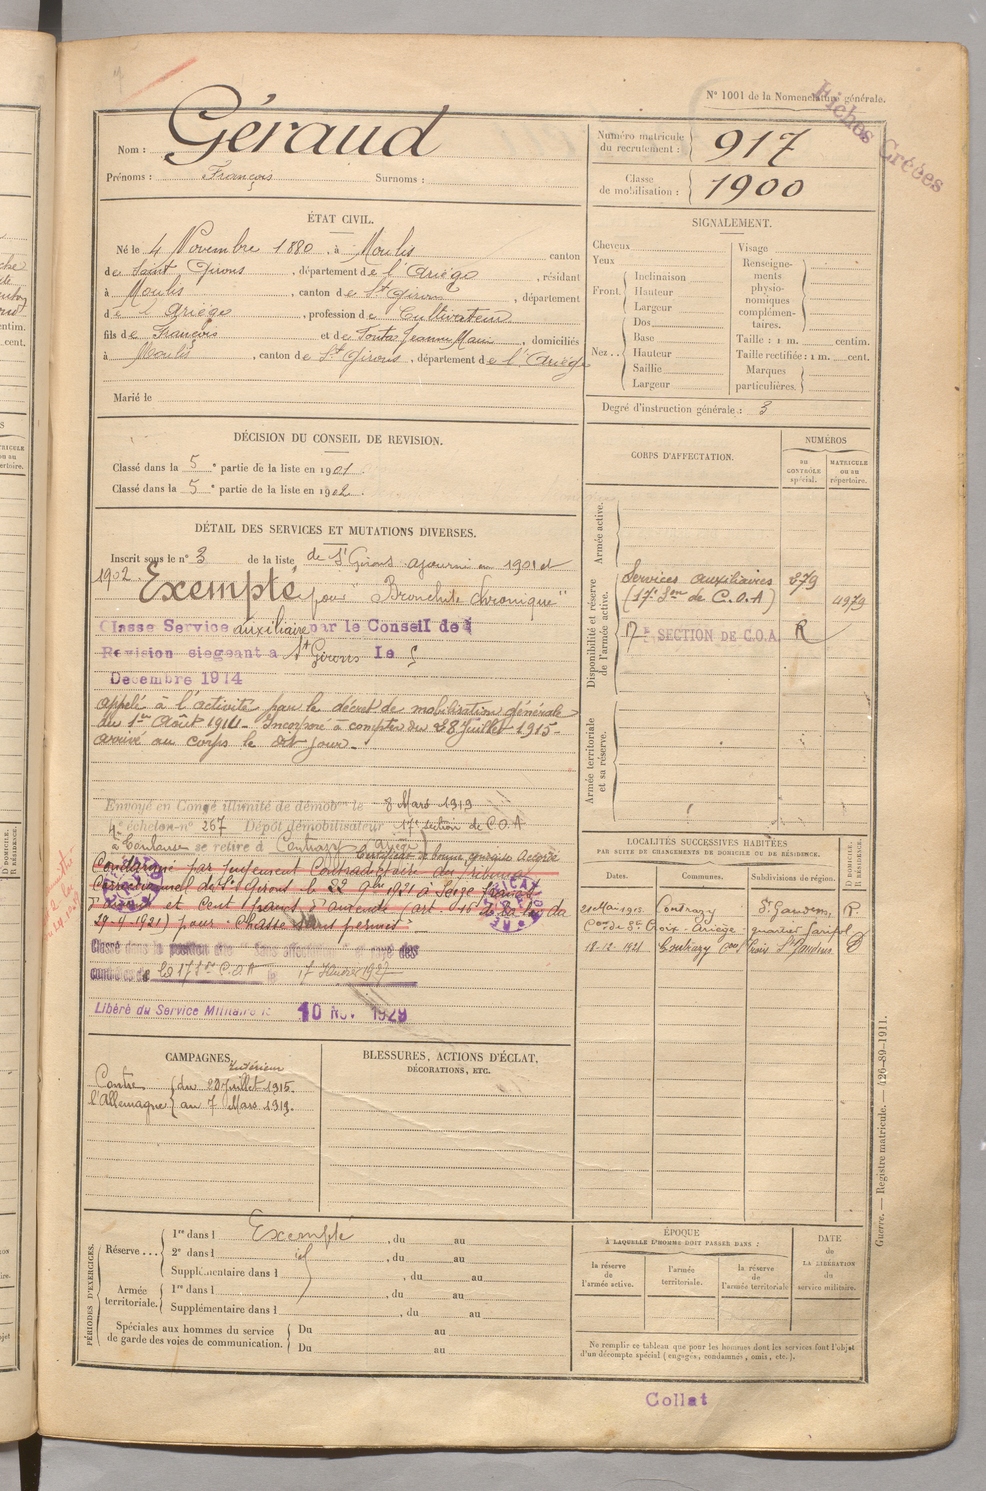 N° 1001 de la Nomenclature générale.
Fiches Créées
Nom : Géraud
Prénoms : François Surnoms :
Numéro matricule du recrutement : 917
Classe de mobilisation : 1900
ÉTAT CIVIL.
Né le 4 Novembre 1880, à Moulis canton
de Saint Girons, département de l'Ariège, résidant
à Moulis, canton de St Girons, département
de l'Ariège, profession de Cultivateur
fils de François et de Jeanne Marie, domiciliés
à Moulis, canton de St Girons, département de l'Ariège
Marié le
SIGNALEMENT.
Cheveux
Yeux
Front. Inclinaison
Hauteur
Largeur
Nez.. Dos
Base
Hauteur
Saillie
Largeur
Visage
Renseignements physionomiques complémentaires.
Taille : 1 m. centim.
Taille rectifiée : 1 m. cent.
Marques particulières.
Degré d'instruction générale : 3
DÉCISION DU CONSEIL DE REVISION.
Classé dans la 5e partie de la liste en 1901.
Classé dans la 5e partie de la liste en 1902.
DÉTAIL DES SERVICES ET MUTATIONS DIVERSES.
Inscrit sous le n° 3 de la liste de St Girons ajourné en 1901 et
1902. Exempté pour "Bronchite chronique"
Classé Service auxiliaire par le Conseil de
Révision siégeant à St Girons le 5
Décembre 1914
appelé à l'activité par le décret de mobilisation générale
du 1er Août 1914. Incorporé à compter du 28 Juillet 1915.
arrivé au corps le dit jour.
Envoyé en Congé illimité de démobon le 8 Mars 1919
4e échelon n° 267 Dépôt démobilisateur 17e section de C.O.A
à Toulouse se retire à Contrazy (Ariège)
Certificat de bonne conduite Accordé
Condamné par jugement Contradictoire du Tribunal
Correctionnel de St Girons le 22 9bre 1921 à Seize francs
d'amende et Cent francs d'amende (art. 16 de la loi du
29-9-1921) pour Chasse sans permis.
Classé dans la position dite "Sans affectation" et rayé des
contrôles de la 17e Son C.O.A le 17 Janvier 1927
Libéré du Service Militaire le 10 NOV 1929
CORPS D'AFFECTATION.
NUMÉROS
au CONTRÔLE spécial.
MATRICULE ou au répertoire.
Armée active.
Disponibilité et réserve de l'armée active.
Services auxiliaires 879
(17e Son de C.O.A) 4979
17e SECTION DE C.O.A. R
Armée territoriale et sa réserve.
LOCALITÉS SUCCESSIVES HABITÉES
PAR SUITE DE CHANGEMENTS DE DOMICILE OU DE RÉSIDENCE.
Dates. Communes. Subdivisions de région. D DOMICILE. R RÉSIDENCE.
21 Mai 1913 Contrazy St Gaudens R.
18-12-1921 Contrazy St Gaudens D
CAMPAGNES.
Intérieur
Contre l'Allemagne du 28 Juillet 1915.
au 7 Mars 1919.
BLESSURES, ACTIONS D'ÉCLAT,
DÉCORATIONS, ETC.
PÉRIODES D'EXERCICES.
Réserve... 1re dans l Exempté, du au
2e dans l id, du au
Supplémentaire dans l , du au
Armée territoriale. 1re dans l , du au
Supplémentaire dans l , du au
Spéciales aux hommes du service de garde des voies de communication. Du au
Du au
ÉPOQUE
À LAQUELLE L'HOMME DOIT PASSER DANS :
la réserve de l'armée active.
l'armée territoriale.
la réserve de l'armée territoriale
DATE de LA LIBÉRATION du service militaire.
Ne remplir ce tableau que pour les hommes dont les services font l'objet
d'un décompte spécial (engagés, condamnés, omis, etc.).
Guerre. — Registre matricule. — 426-89-1911.
Collat